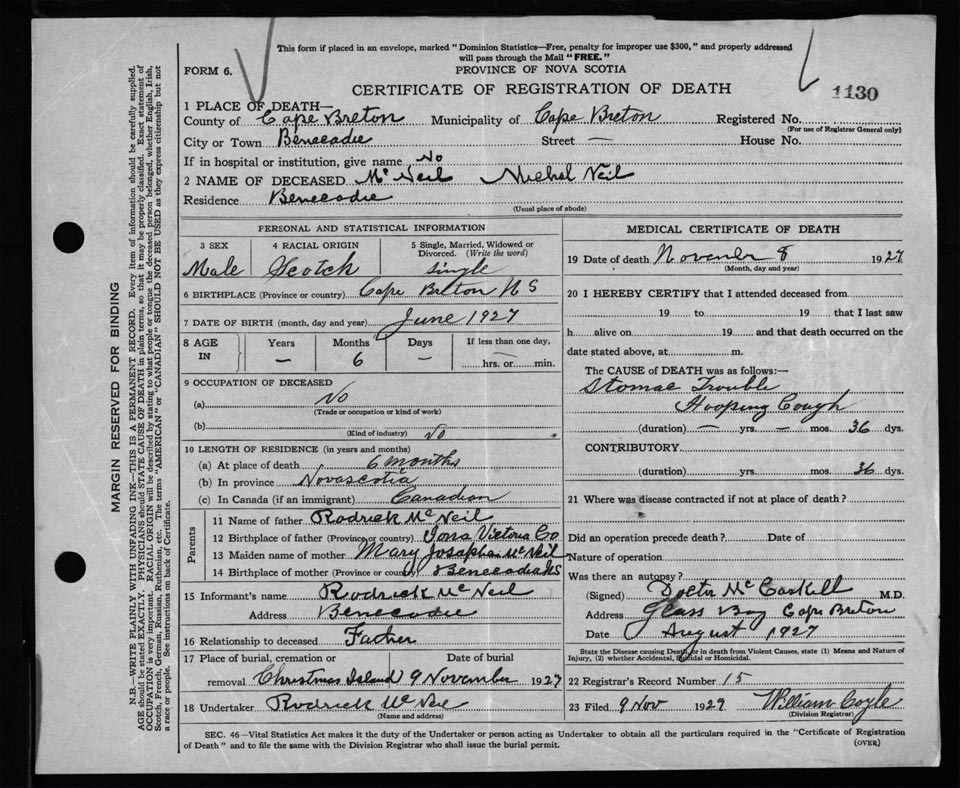 This form if placed in an envelope, marked "Dominion Statistics—Free, penalty for improper use $300," and properly addressed
will pass through the Mail "FREE."
FORM 6.
PROVINCE OF NOVA SCOTIA
CERTIFICATE OF REGISTRATION OF DEATH
1130
1 PLACE OF DEATH—
County of Cape Breton Municipality of Cape Breton Registered No.
(For use of Registrar General only)
City or Town Benecadie Street — House No.
If in hospital or institution, give name No
2 NAME OF DECEASED Mc Neil Michel Neil
Residence Benecadie
(Usual place of abode)
PERSONAL AND STATISTICAL INFORMATION
3 SEX 4 RACIAL ORIGIN 5 Single, Married, Widowed or Divorced. (Write the word)
Male Scotch single
6 BIRTHPLACE (Province or country) Cape Breton N S
7 DATE OF BIRTH (month, day and year) June 1927
8 AGE IN Years Months Days If less than one day,
— 6 — hrs. or min.
9 OCCUPATION OF DECEASED
(a) No
(Trade or occupation or kind of work)
(b)
(Kind of industry) No
10 LENGTH OF RESIDENCE (in years and months)
(a) At place of death 6 months
(b) In province Novascotia
(c) In Canada (if an immigrant) Canadian
Parents
11 Name of father Rodrick Mc Neil
12 Birthplace of father (Province or country) Iona Victoria Co
13 Maiden name of mother Mary Josapha Mc Neil
14 Birthplace of mother (Province or country) Benecadia NS
15 Informant's name Rodrick Mc Neil
Address Benecadie
16 Relationship to deceased Father
17 Place of burial, cremation or removal Date of burial
Christmas Island 9 November 1927
18 Undertaker Rodrick Mc Neil
(Name and address)
MEDICAL CERTIFICATE OF DEATH
19 Date of death November 8 1927
(Month, day and year)
20 I HEREBY CERTIFY that I attended deceased from
19 to 19 that I last saw
h alive on 19 and that death occurred on
date stated above, at m.
The CAUSE of DEATH was as follows:—
Stomac Trouble
Hooping Cough
(duration) — yrs. — mos. 36 dys.
CONTRIBUTORY
(duration) yrs. mos. 36 dys.
21 Where was disease contracted if not at place of death?
Did an operation precede death? Date of
Nature of operation
Was there an autopsy?
(Signed) Doctor Mc Caskill M.D.
Address Glass Bay Cape Breton
Date August 1927
State the Disease causing Death, or in death from Violent Causes, state (1) Means and Nature of
Injury, (2) whether Accidental, Suicidal or Homicidal.
22 Registrar's Record Number 15
23 Filed 9 Nov 1927 William Coyle
(Division Registrar)
SEC. 46—Vital Statistics Act makes it the duty of the Undertaker or person acting as Undertaker to obtain all the particulars required in the "Certificate of Registration
of Death" and to file the same with the Division Registrar who shall issue the burial permit.
(OVER)
MARGIN RESERVED FOR BINDING
N.B.—WRITE PLAINLY WITH UNFADING INK—THIS IS A PERMANENT RECORD. Every item of information should be carefully supplied.
AGE should be stated EXACTLY. PHYSICIANS should STATE CAUSE OF DEATH in plain terms, so that it may be properly classified. Exact statement of
OCCUPATION is very important. RACIAL ORIGIN will be described by stating to what people or tongue the deceased person belonged, whether English, Irish,
Scotch, French, German, Russian, Ruthenian, etc. The terms "AMERICAN" or "CANADIAN" SHOULD NOT BE USED as they express citizenship but not
a race or people. See instructions on back of Certificate.